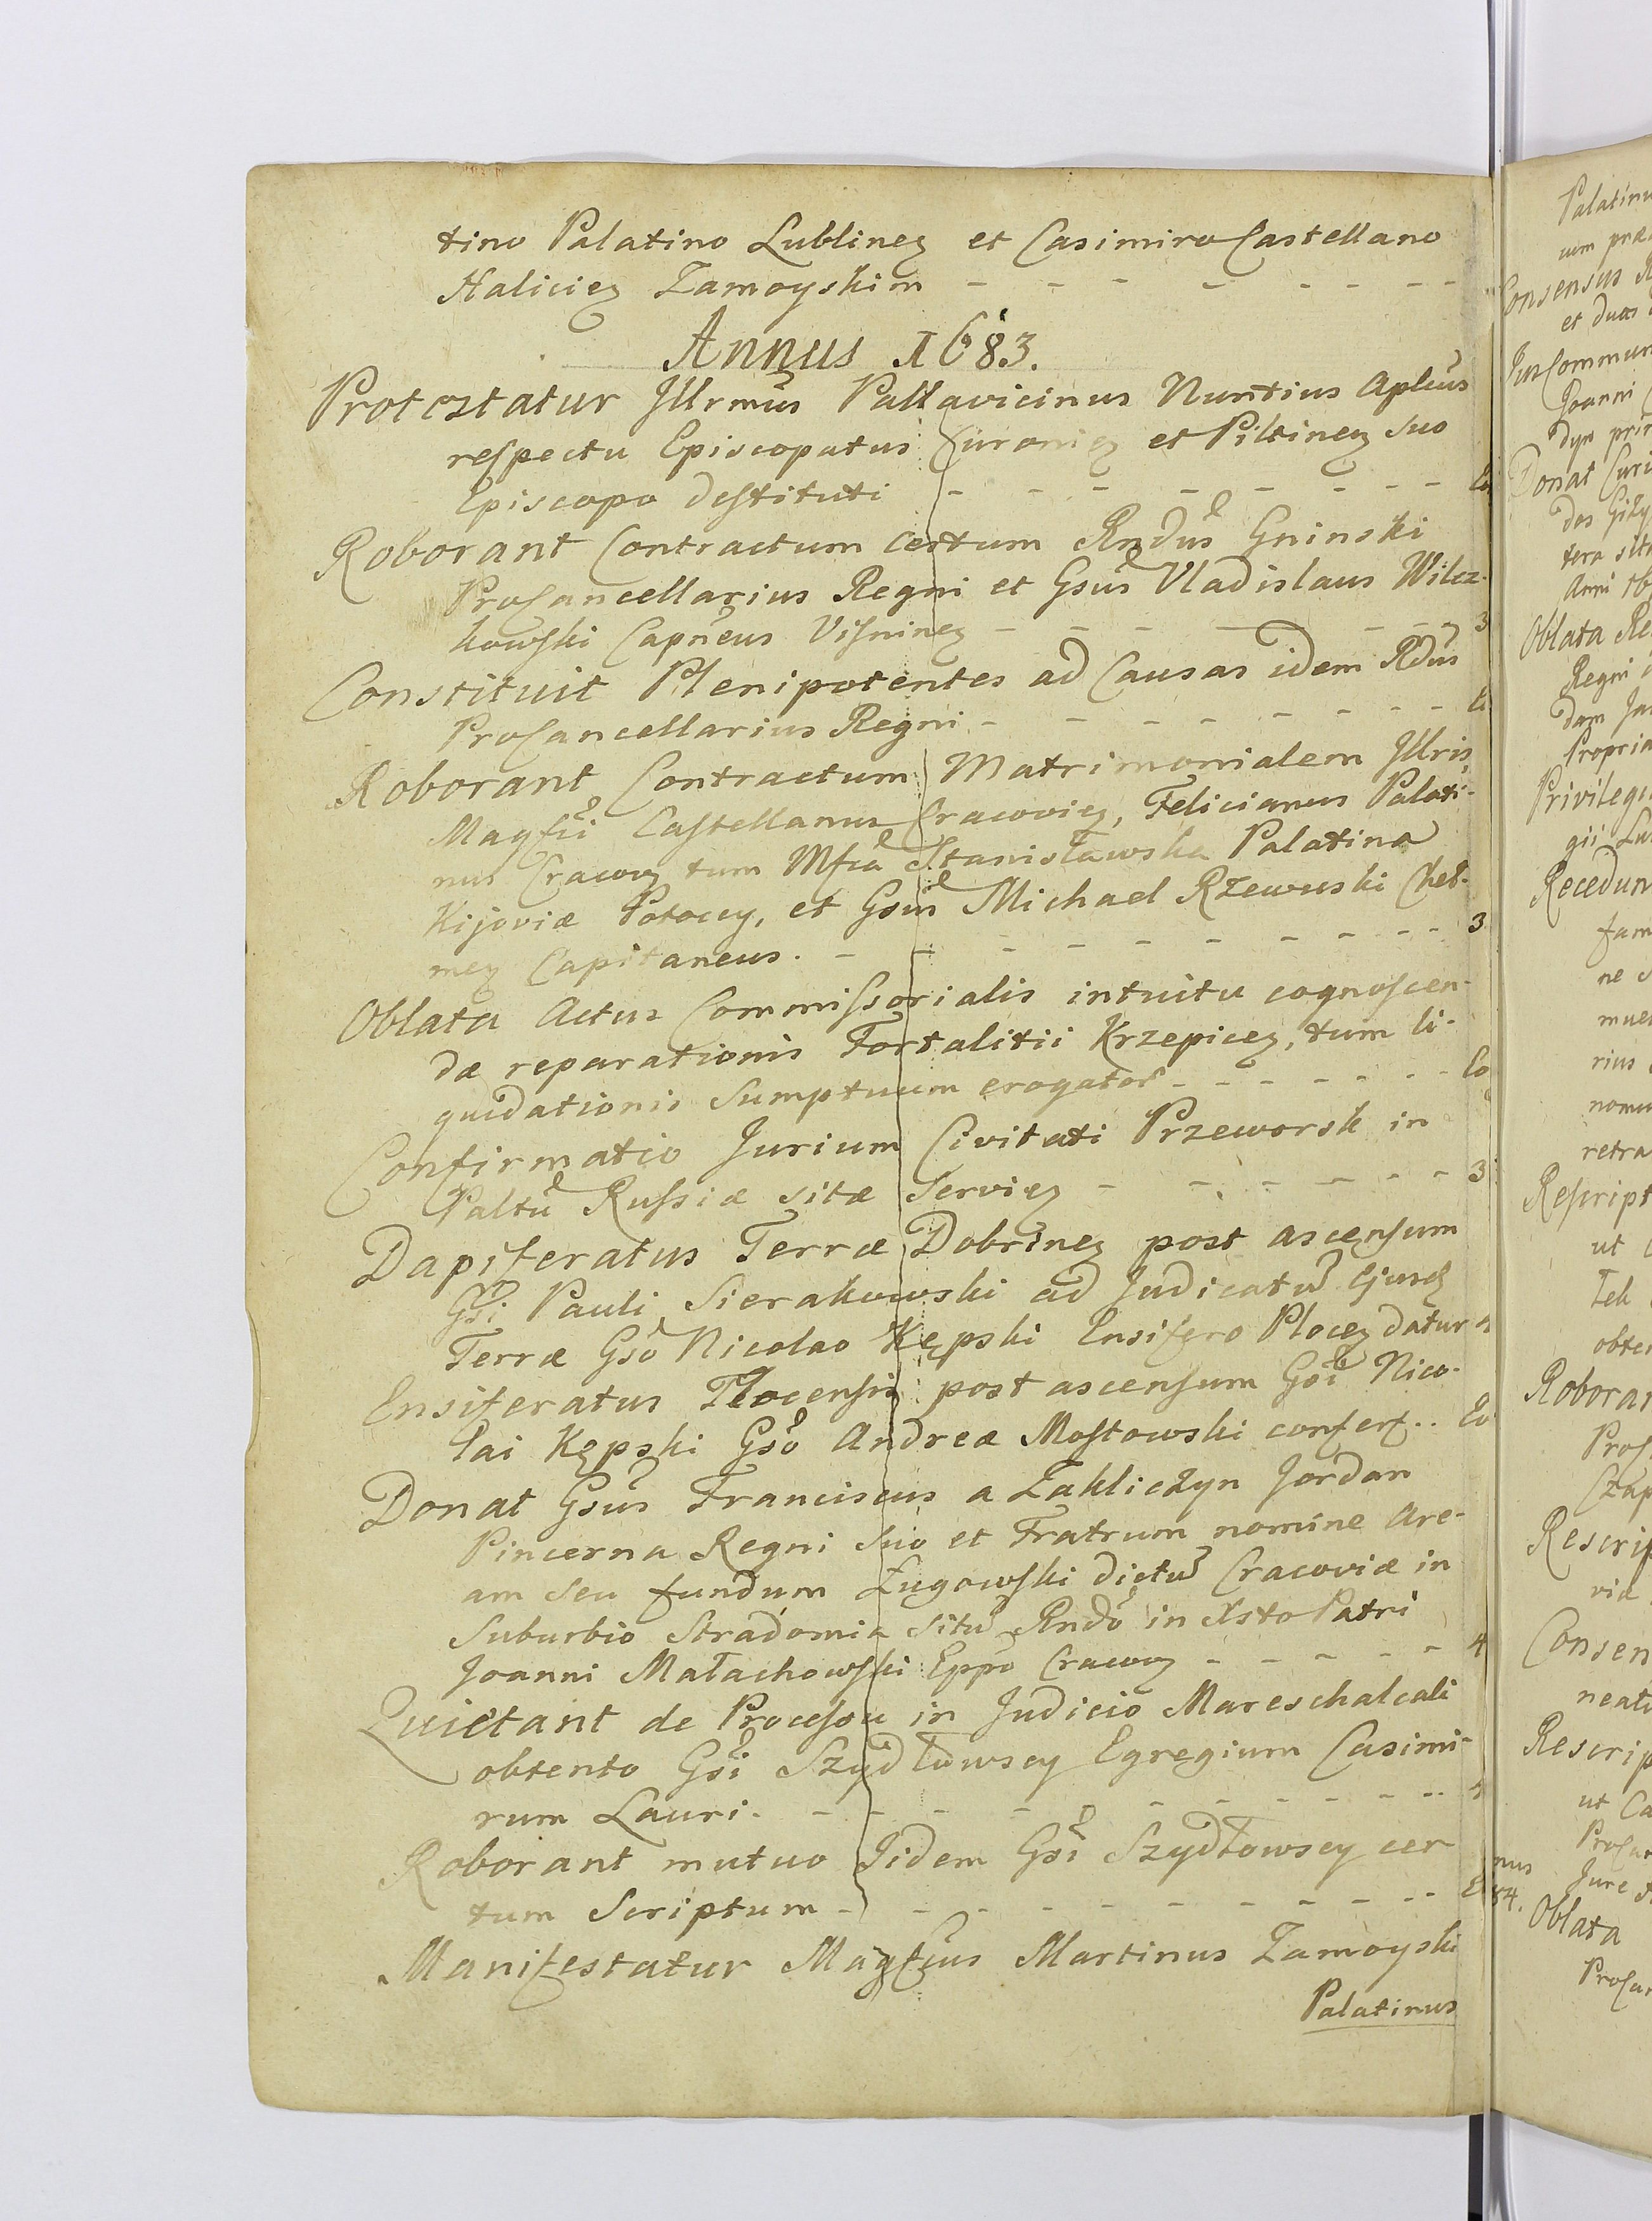 tino Palatino Lublineȝ et Casimiro Castellano
Halicieȝ Zamoyskim - - - - - - - -
Annus 1683.
Protestatur Jllrmus Pallavicinus Nuntius Aplcus
respectu Episcopatus Curonieȝ et Piltineȝ suo
Episcopo destituti - - - - - - - -
Roborant Contractum certum Rndus Gninski
ProCancellarius Regni et Gsus Vladislaus Wilcz-
kowski Capneus Visnineȝ - - - - - - 3
Constituit Plenipotentes ad Causas idem Rdus
ProCancellarius Regni - - - - - - - -
Roborant Contractum Matrimonialem Jllris,
Magfci Castellanus Cracovieȝ, Felicianus Palati-
nus Cracovȝ tum Mfca Stanisławska Palatina
Kijoviæ Potoccy, et Gsus Michael Rzewuski Cheł-
meȝ Capitaneus. - - - - - - - - - 3
Oblata Actus Commissorialis intuitu cognoscen-
dæ reparationis Fortalitii Krzepiceȝ, tum li-
quidationis Sumptuum erogator - - - - - - - Eo
Confirmatio Jurium Civitati Przeworsk in
Paltu Russiæ sitæ Servieȝ - - - - - - 3
Dapiferatus Terræ Dobrineȝ post ascensum
Gsi Pauli Sierakowski ad Judicatu Ejusd
Terræ Gso Nicolao Kępski Ensifero Ploceȝ datur
Ensiferatus Plocensis post ascensum Gsi Nico-
lai Kępski Gso Andreæ Mostowski confert .. Eo
Donat Gsus Franciscus a Zakliczyn Jordan
Pincerna Regni suo et Fratrum nomine Are-
am seu fundum Ługowski dictu Cracoviæ in
Suburbio Stradomia situ Rndo in Xsto Patri
Joanni Małachowski Eppo Cracovȝ - - - - - 4
Quietant de Processu in Judicio Mareschalcali
obtento Gsi Szydłowscy Egregium Casimi-
rum Lauri. - - - - - - - - - - ..
Roborant mutuo Jidem Gsi Szydłowscy cer
tum Scriptum - - - - - - - - - ..
Manifestatur Magfcus Martinus Zamoyski
Palatinus
Palatinu
Consensus R
et duas
Jus Commun
Joanni
Donat Curi
Oblata Re
Regni
Propria
Privilegi
gii Lu
Recedun
fam
mue
rius
nomi
retra
Rescript
ut
Tek
obten
Roboran
Czap
Rescrip
via
Consen
neati
Rescrip
ut Ca
Jure
Oblata
84.